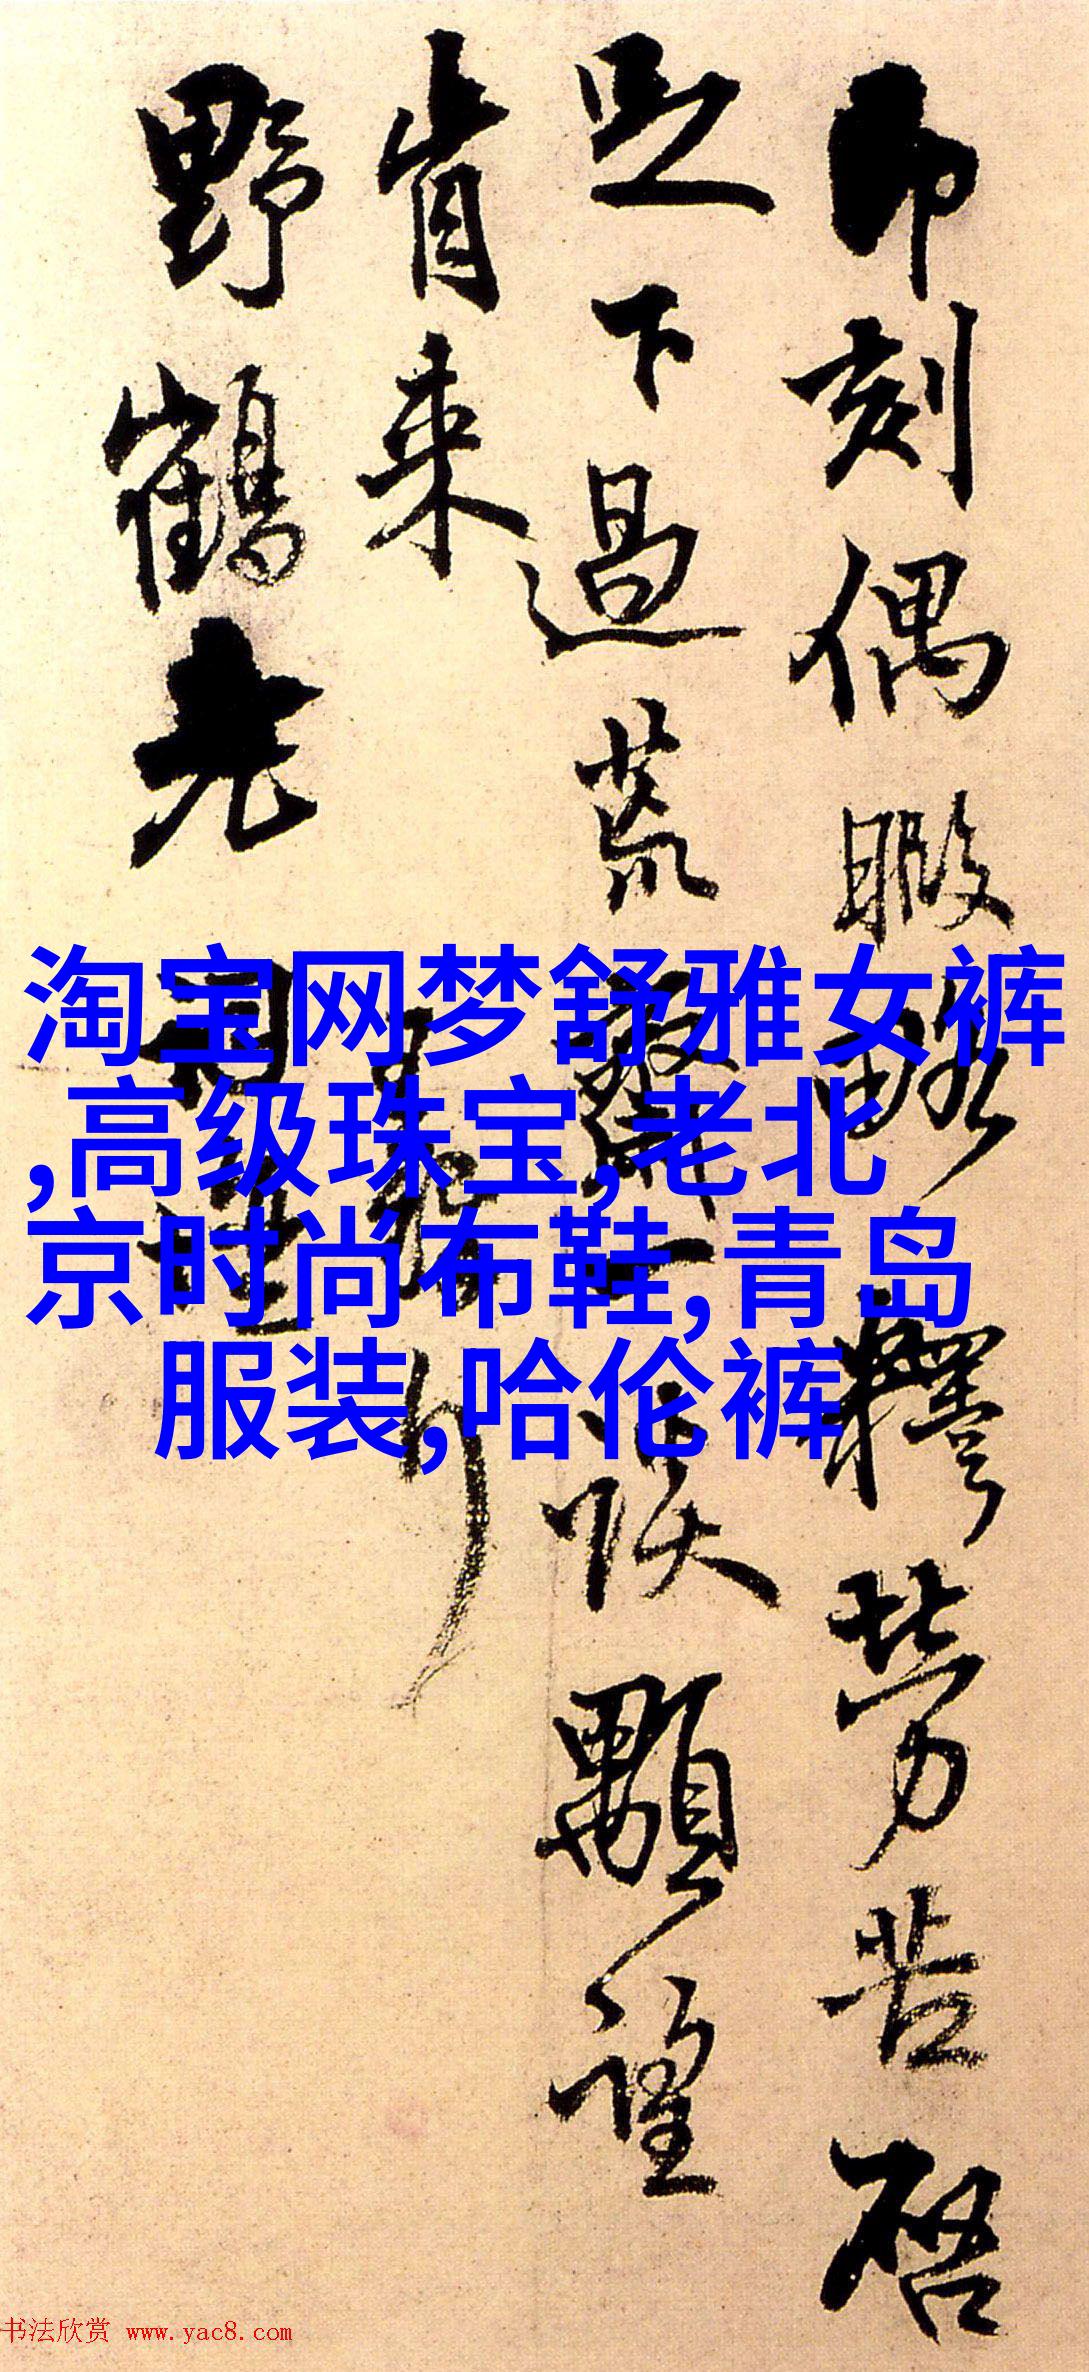 即刻偶暇略释劳苦启
足下过荒斋一谈颙望
肯来
野鹤老
淘宝网梦舒雅女裤
,高级珠宝,老北
京时尚布鞋,青岛
服装,哈伦裤
书法欣赏 www.yac8.com